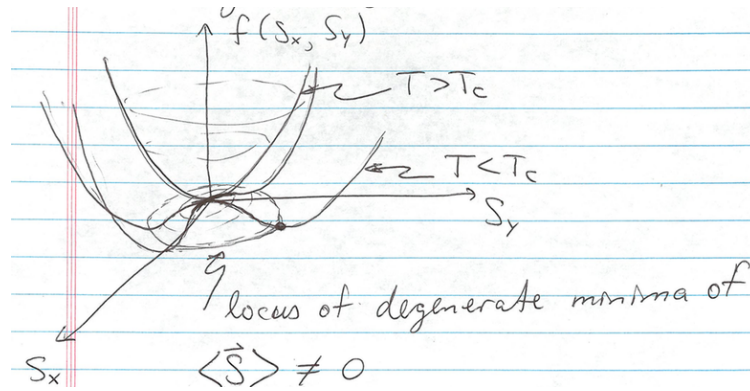 f(Sx, Sy)
T>Tc
T<Tc
Sy
locus of degenerate minima of
Sx
⟨S⃗⟩ ≠ 0